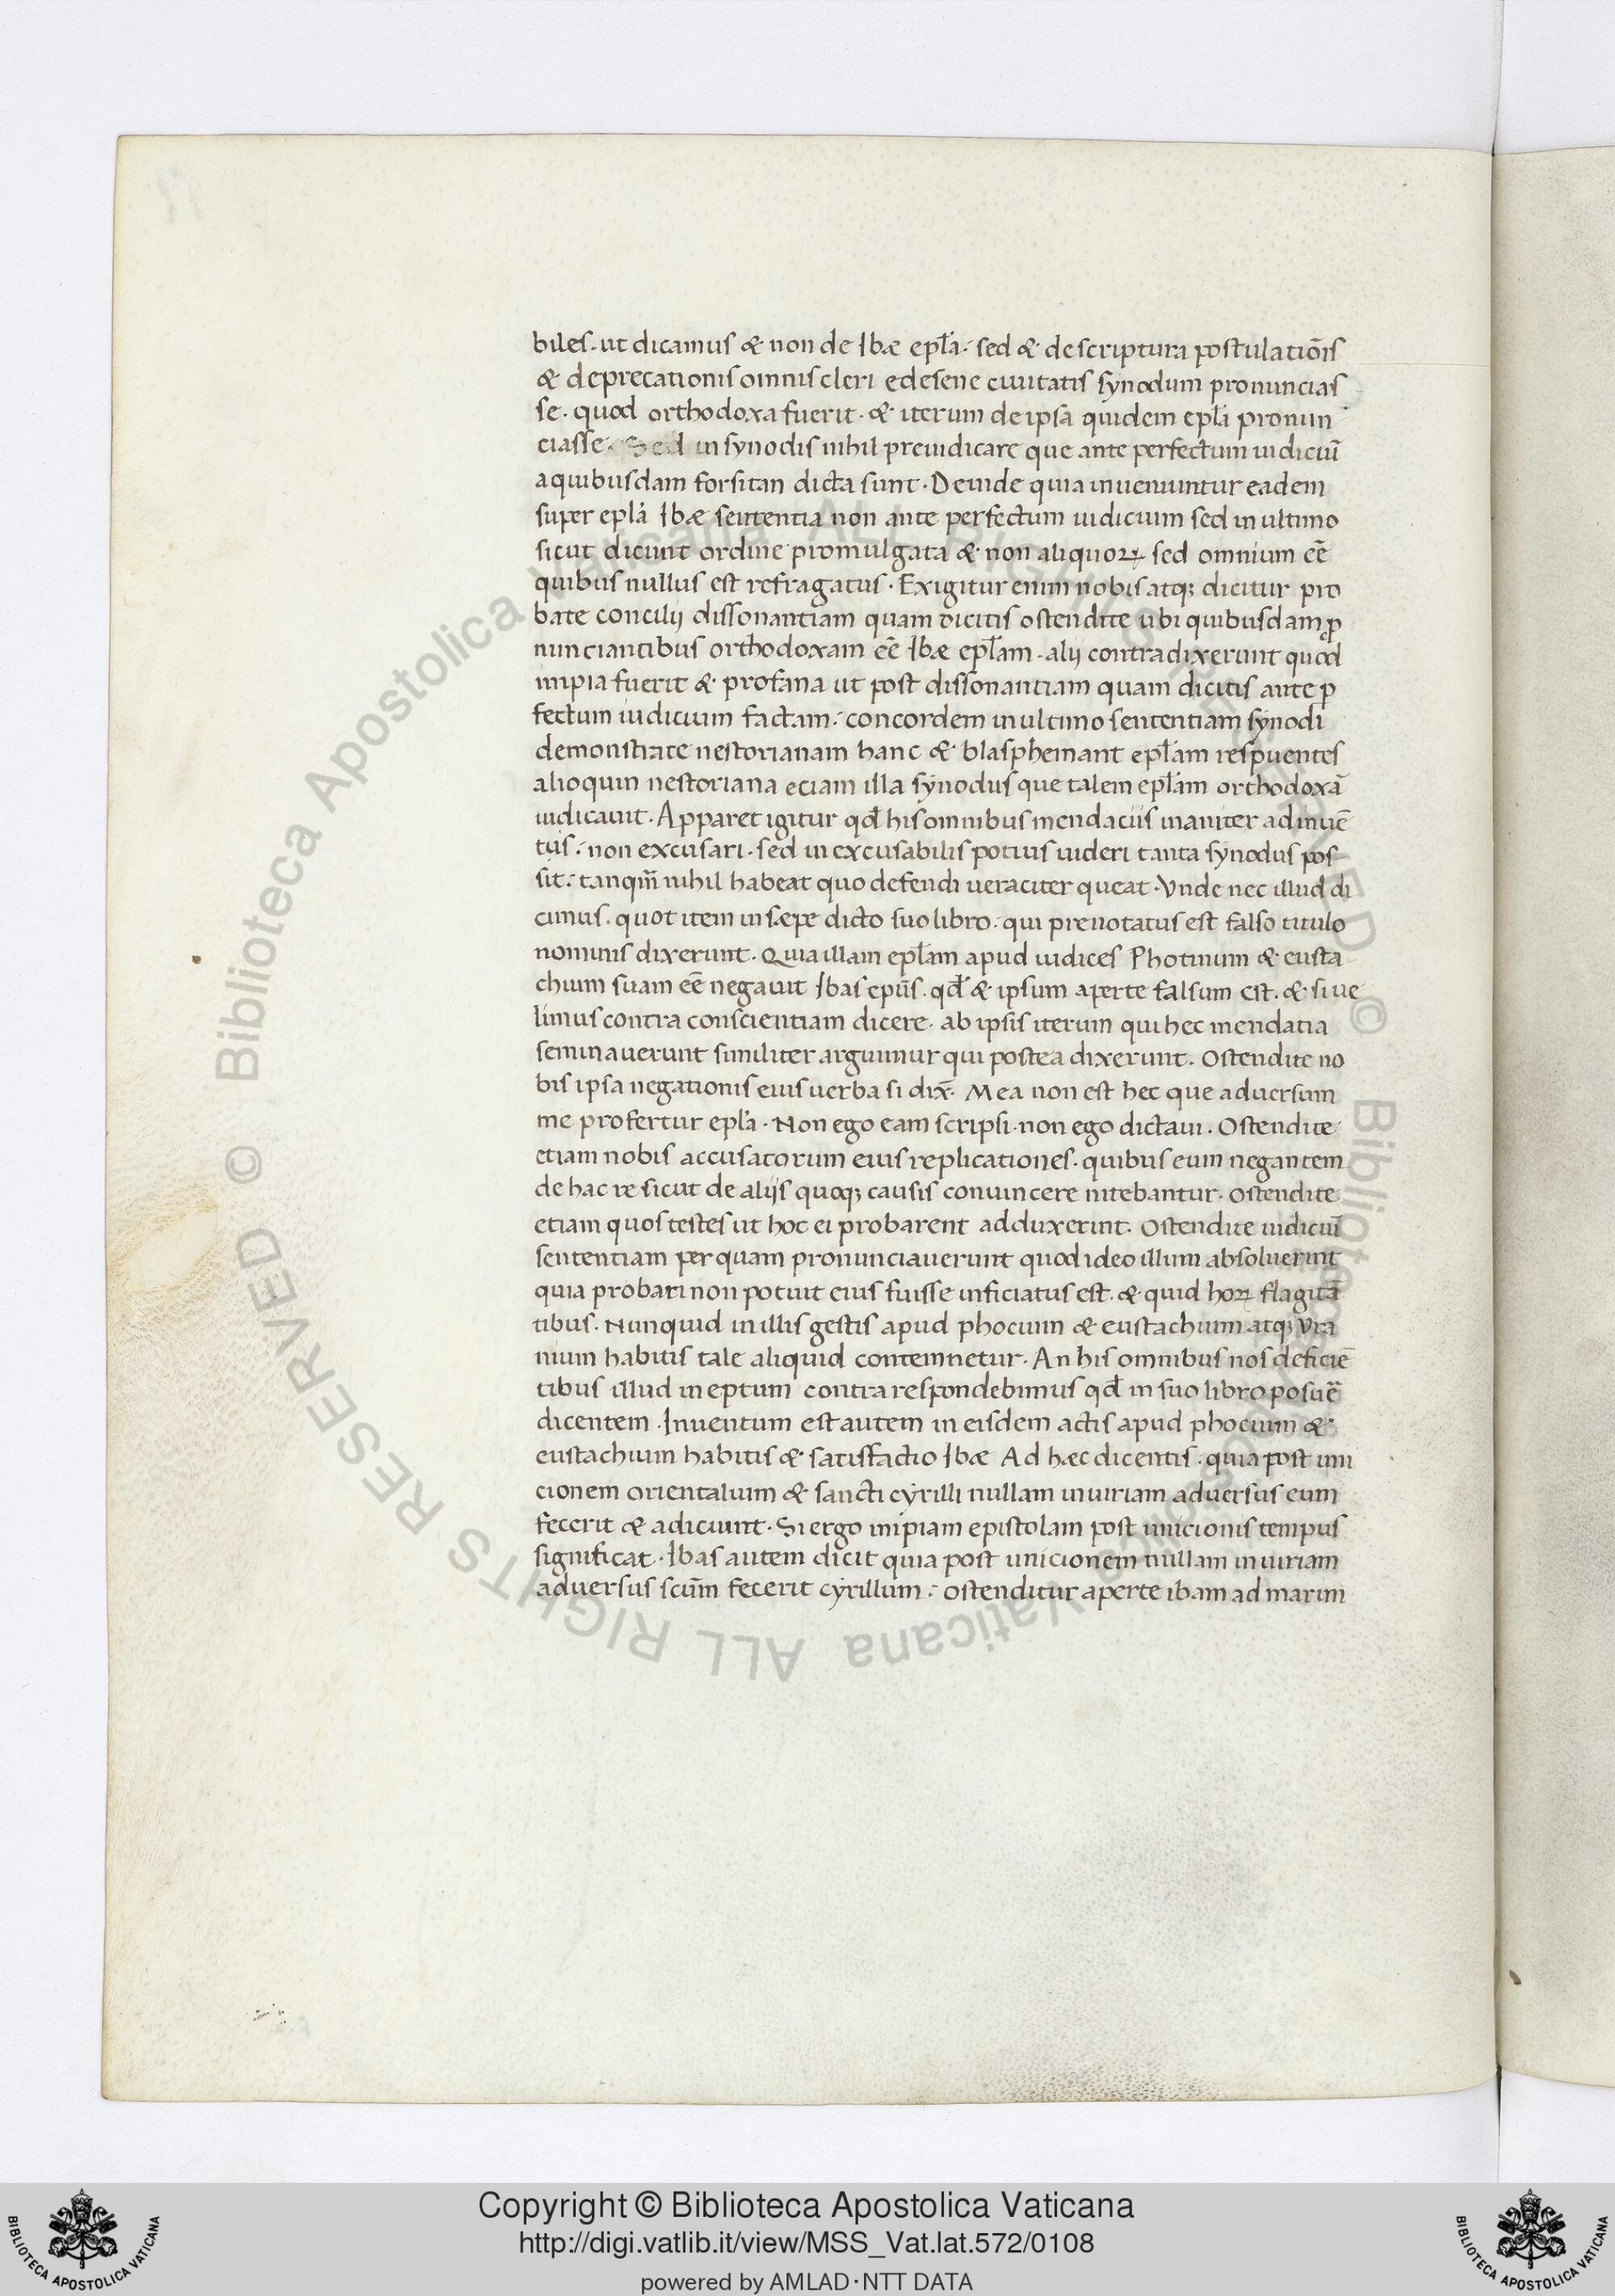 biles. ut dicamus & non de Ibæ epła. sed & de scriptura postulatiōis
& deprecationis omnis cleri edesene ciuitatis synodum pronuncias
se. quod orthodoxa fuerit. & iterum de ipsa quidem epła pronun
ciasse. Sed in synodis nihil preiudicare que ante perfectum iudiciū
a quibusdam forsitan dicta sunt. Deinde quia inueniuntur eadem
super epła Ibæ sententia non ante perfectum iudicium sed in ultimo
sicut dicunt ordine promulgata & non aliquoꝝ sed omnium eē
quibus nullus est refragatus. Exigitur enim nobis atqꝫ dicitur pro
bate concilij dissonantiam quam dicitis ostendite ubi quibusdam ꝓ
nunciantibus orthodoxam eē Ibæ epłam. alij contradixerunt quod
impia fuerit & profana ut post dissonantiam quam dicitis ante ꝑ
fectum iudicium factam. concordem in ultimo sententiam synodi
demonstrate nestorianam hanc & blasphemant epłam respuentes
alioquin nestoriana eciam illa synodus que talem epłam orthodoxā
iudicauit. Apparet igitur qđ his omnibus mendaciis inaniter adinuē
tis. non excusari. sed inexcusabilis potius uideri tanta synodus pos
sit. tanqm̄ nihil habeat quo defendi ueraciter queat. Vnde nec illud di
cimus. quot item in sæpe dicto suo libro. qui prenotatus est falso titulo
nominis dixerunt. Quia illam epłam apud iudices Photinum & eusta
chium suam eē negauit Ibas epūs. qđ & ipsum aperte falsum est. & si ue
limus contra conscientiam dicere. ab ipsis iterum qui hec mendatia
seminauerunt similiter arguimur qui postea dixerunt. Ostendite no
bis ipsa negationis eius uerba si dix̄. Mea non est hec que aduersum
me profertur epła. Non ego eam scripsi. non ego dictaui. Ostendite
etiam nobis accusatorum eius replicationes. quibus eum negantem
de hac re sicut de alijs quoqꝫ causis conuincere nitebantur. Ostendite
etiam quos testes ut hoc ei probarent adduxerint. Ostendite iudiciū
sententiam per quam pronunciauerunt quod ideo illum absoluerint
quia probari non potuit eius fuisse inficiatus est. & quid hoꝝ flagitā
tibus. Nunquid in illis gestis apud phocium & eustachium atqꝫ Vra
nium habitis tale aliquid contemnetur. An his omnibus nos deficiē
tibus illud ineptum contra respondebimus qđ in suo libro posuē
dicentem. Inuentum est autem in eisdem actis apud phocium &
eustachium habitis & satisfactio Ibæ Ad hæc dicentis. quia post uni
cionem orientalium & sancti cyrilli nullam iniuriam aduersus eum
fecerit & adiciunt. Si ergo impiam epistolam post unicionis tempus
significat. Ibas autem dicit quia post unicionem nullam iniuriam
aduersus scūm fecerit cyrillum. ostenditur aperte ibam ad marim
© Biblioteca Apostolica Vaticana ALL RIGHTS RESERVED © Biblioteca Apostolica Vaticana ALL RIGHTS RESERVED
Copyright © Biblioteca Apostolica Vaticana
http://digi.vatlib.it/view/MSS_Vat.lat.572/0108
powered by AMLAD·NTT DATA
BIBLIOTECA APOSTOLICA VATICANA
BIBLIOTECA APOSTOLICA VATICANA